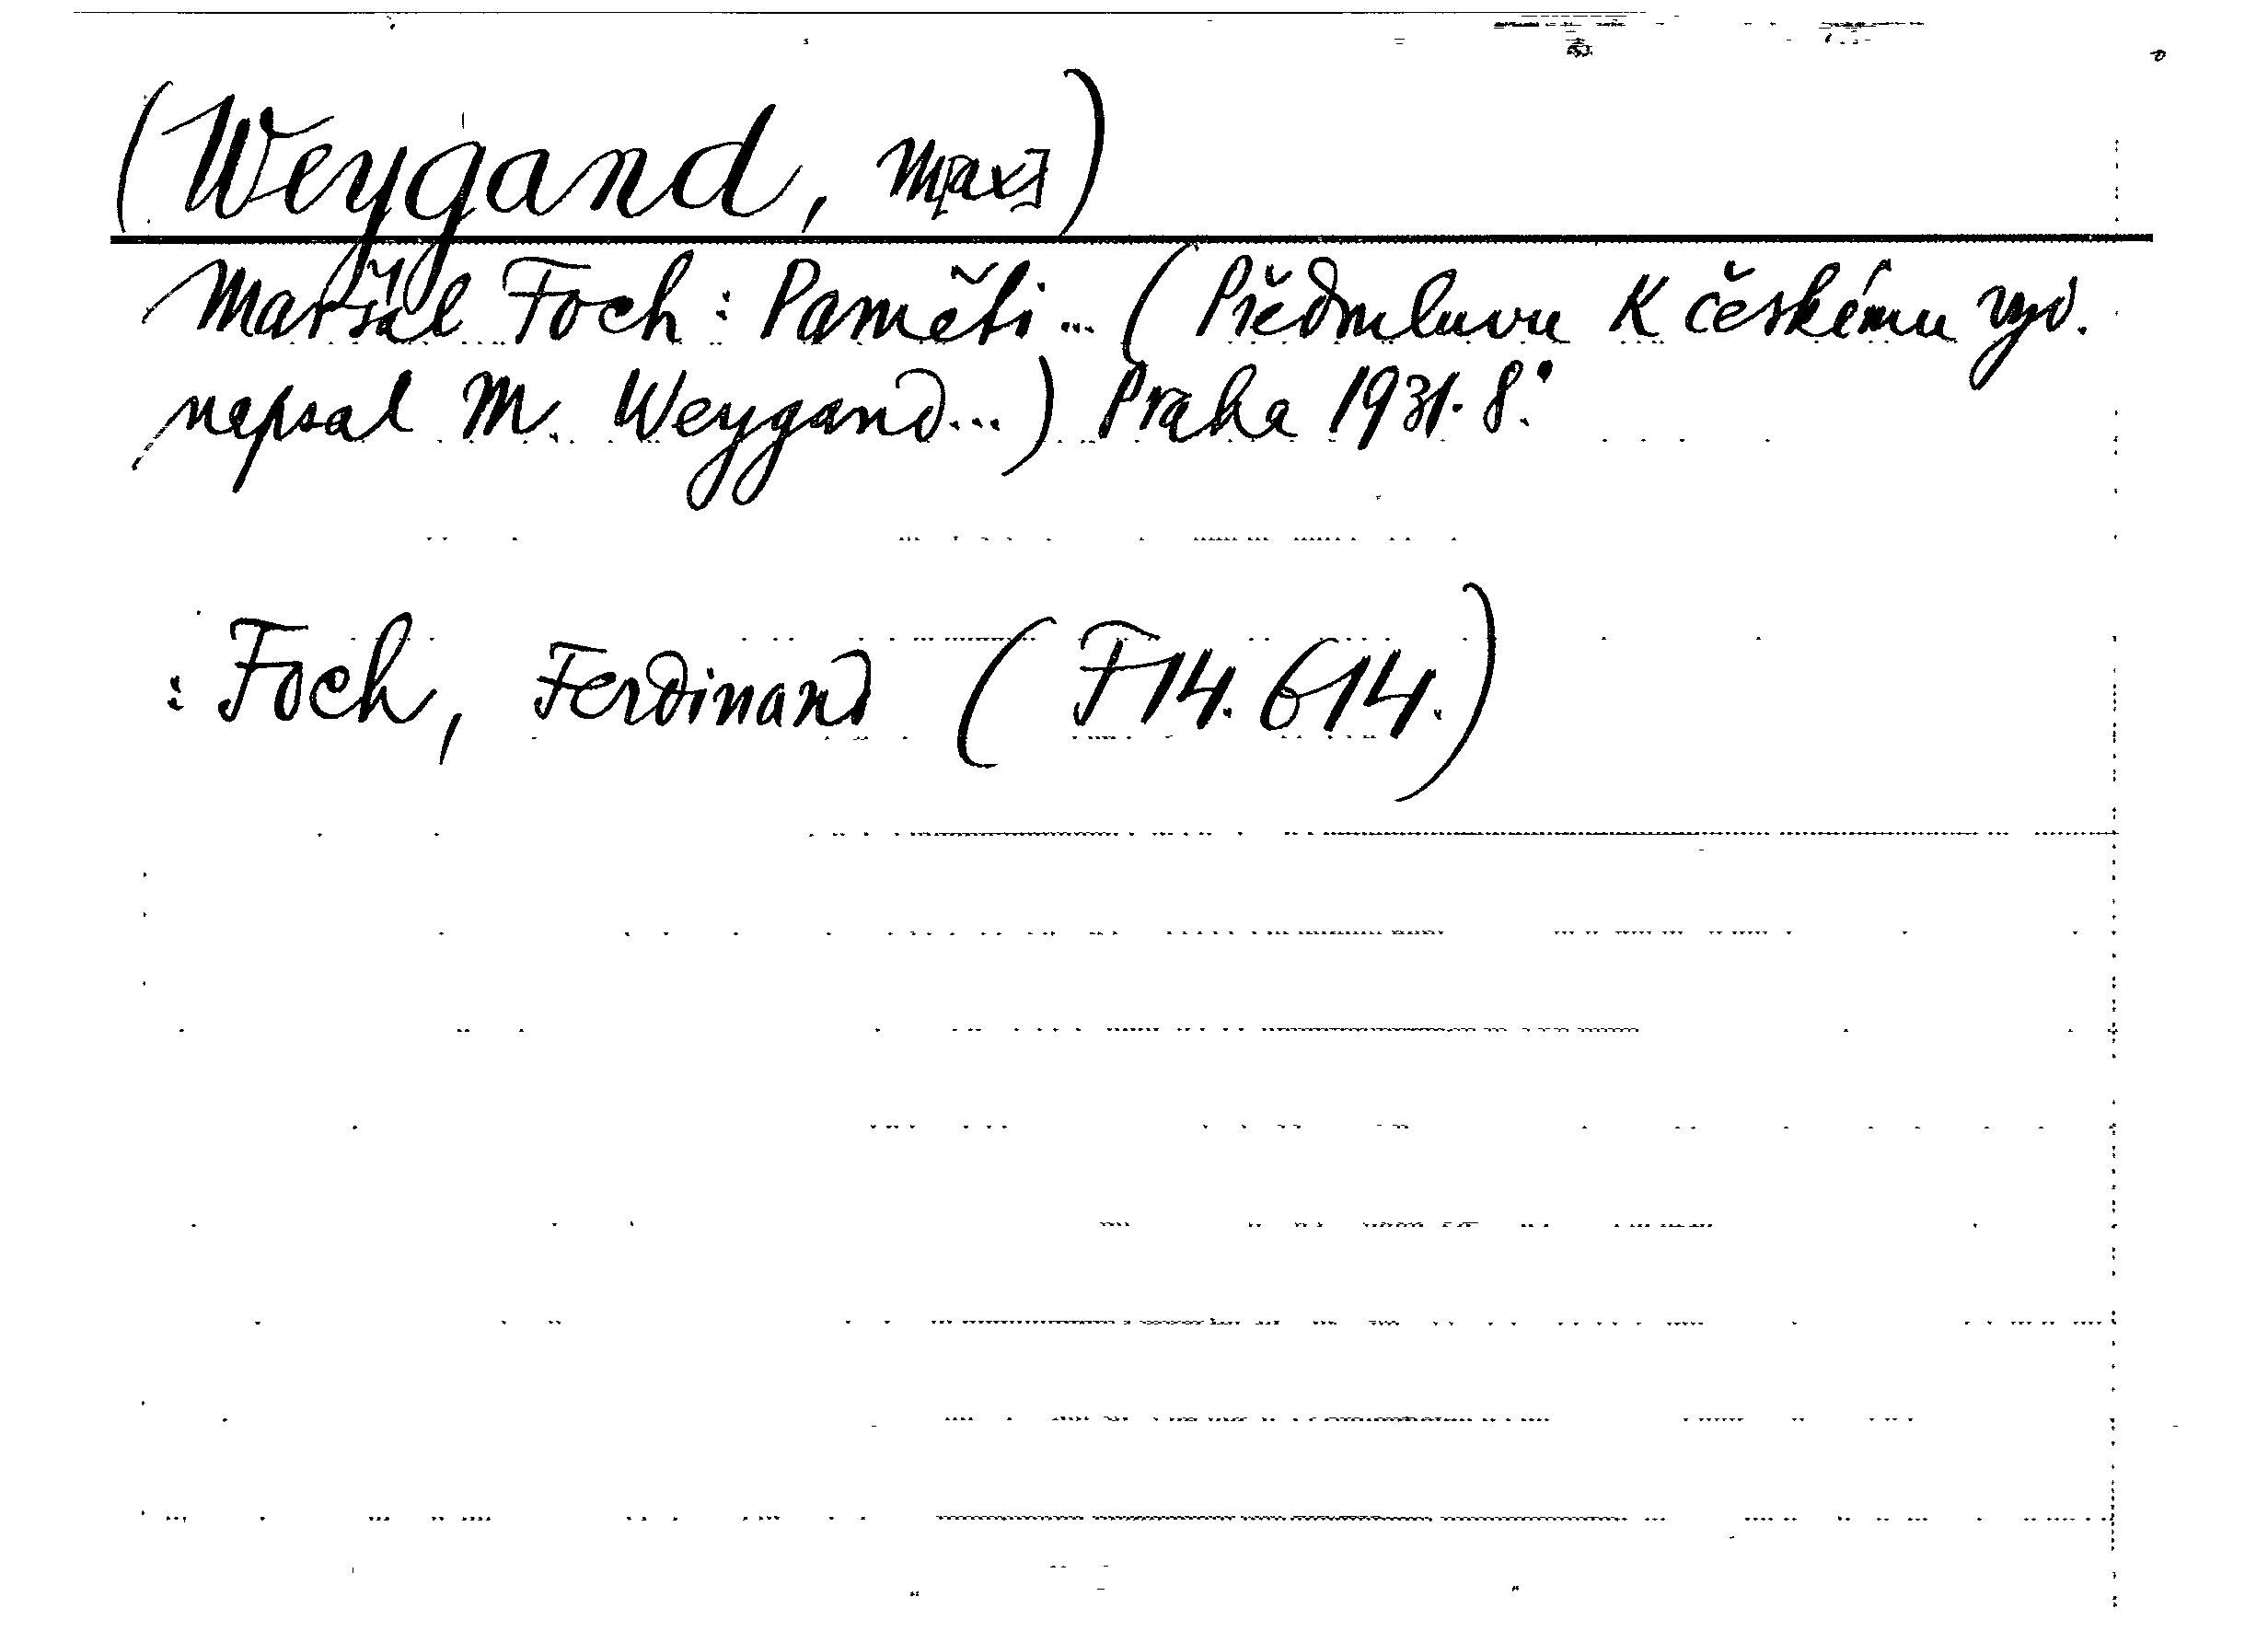 (Weygand, M[ax])
Maršál Foch: Paměti... (Předmluvu k českému vyd.
napsal M. Weygand...) Praha 1931. 8.°
: Foch, Ferdinand (F 14.614.)